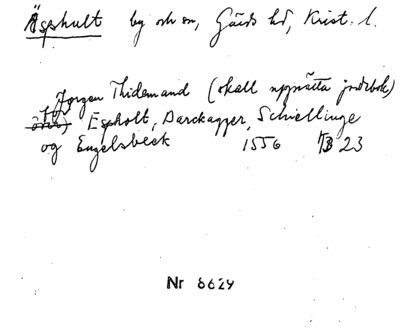 Äsphult by och sn, Gärds hd, Krist. l.
Jörgen Thidemand (skall upprätta jordebok)
för Espholt, Darckagger, Schiellinge
og Engelsbeck 1556 TB 23
Nr 6629